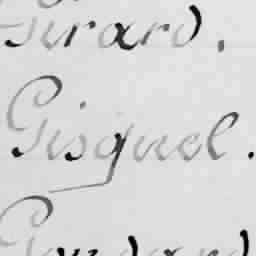 Girard.
Gisquel.